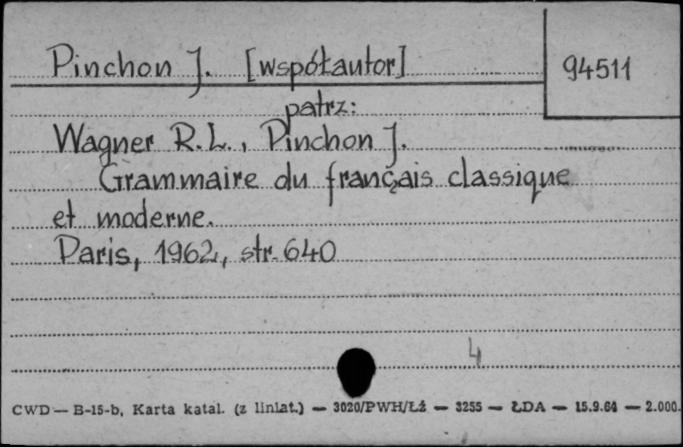 Pinchon J. [współautor]
94511
patrz:
Wagner R.L., Pinchon J.
Grammaire du français classique
et moderne.
Paris, 1962, str. 640
4
CWD — B-15-b, Karta katal. (z liniat.) — 3020/PWH/Łź — 3255 — ŁDA — 15.9.64 — 2.000.